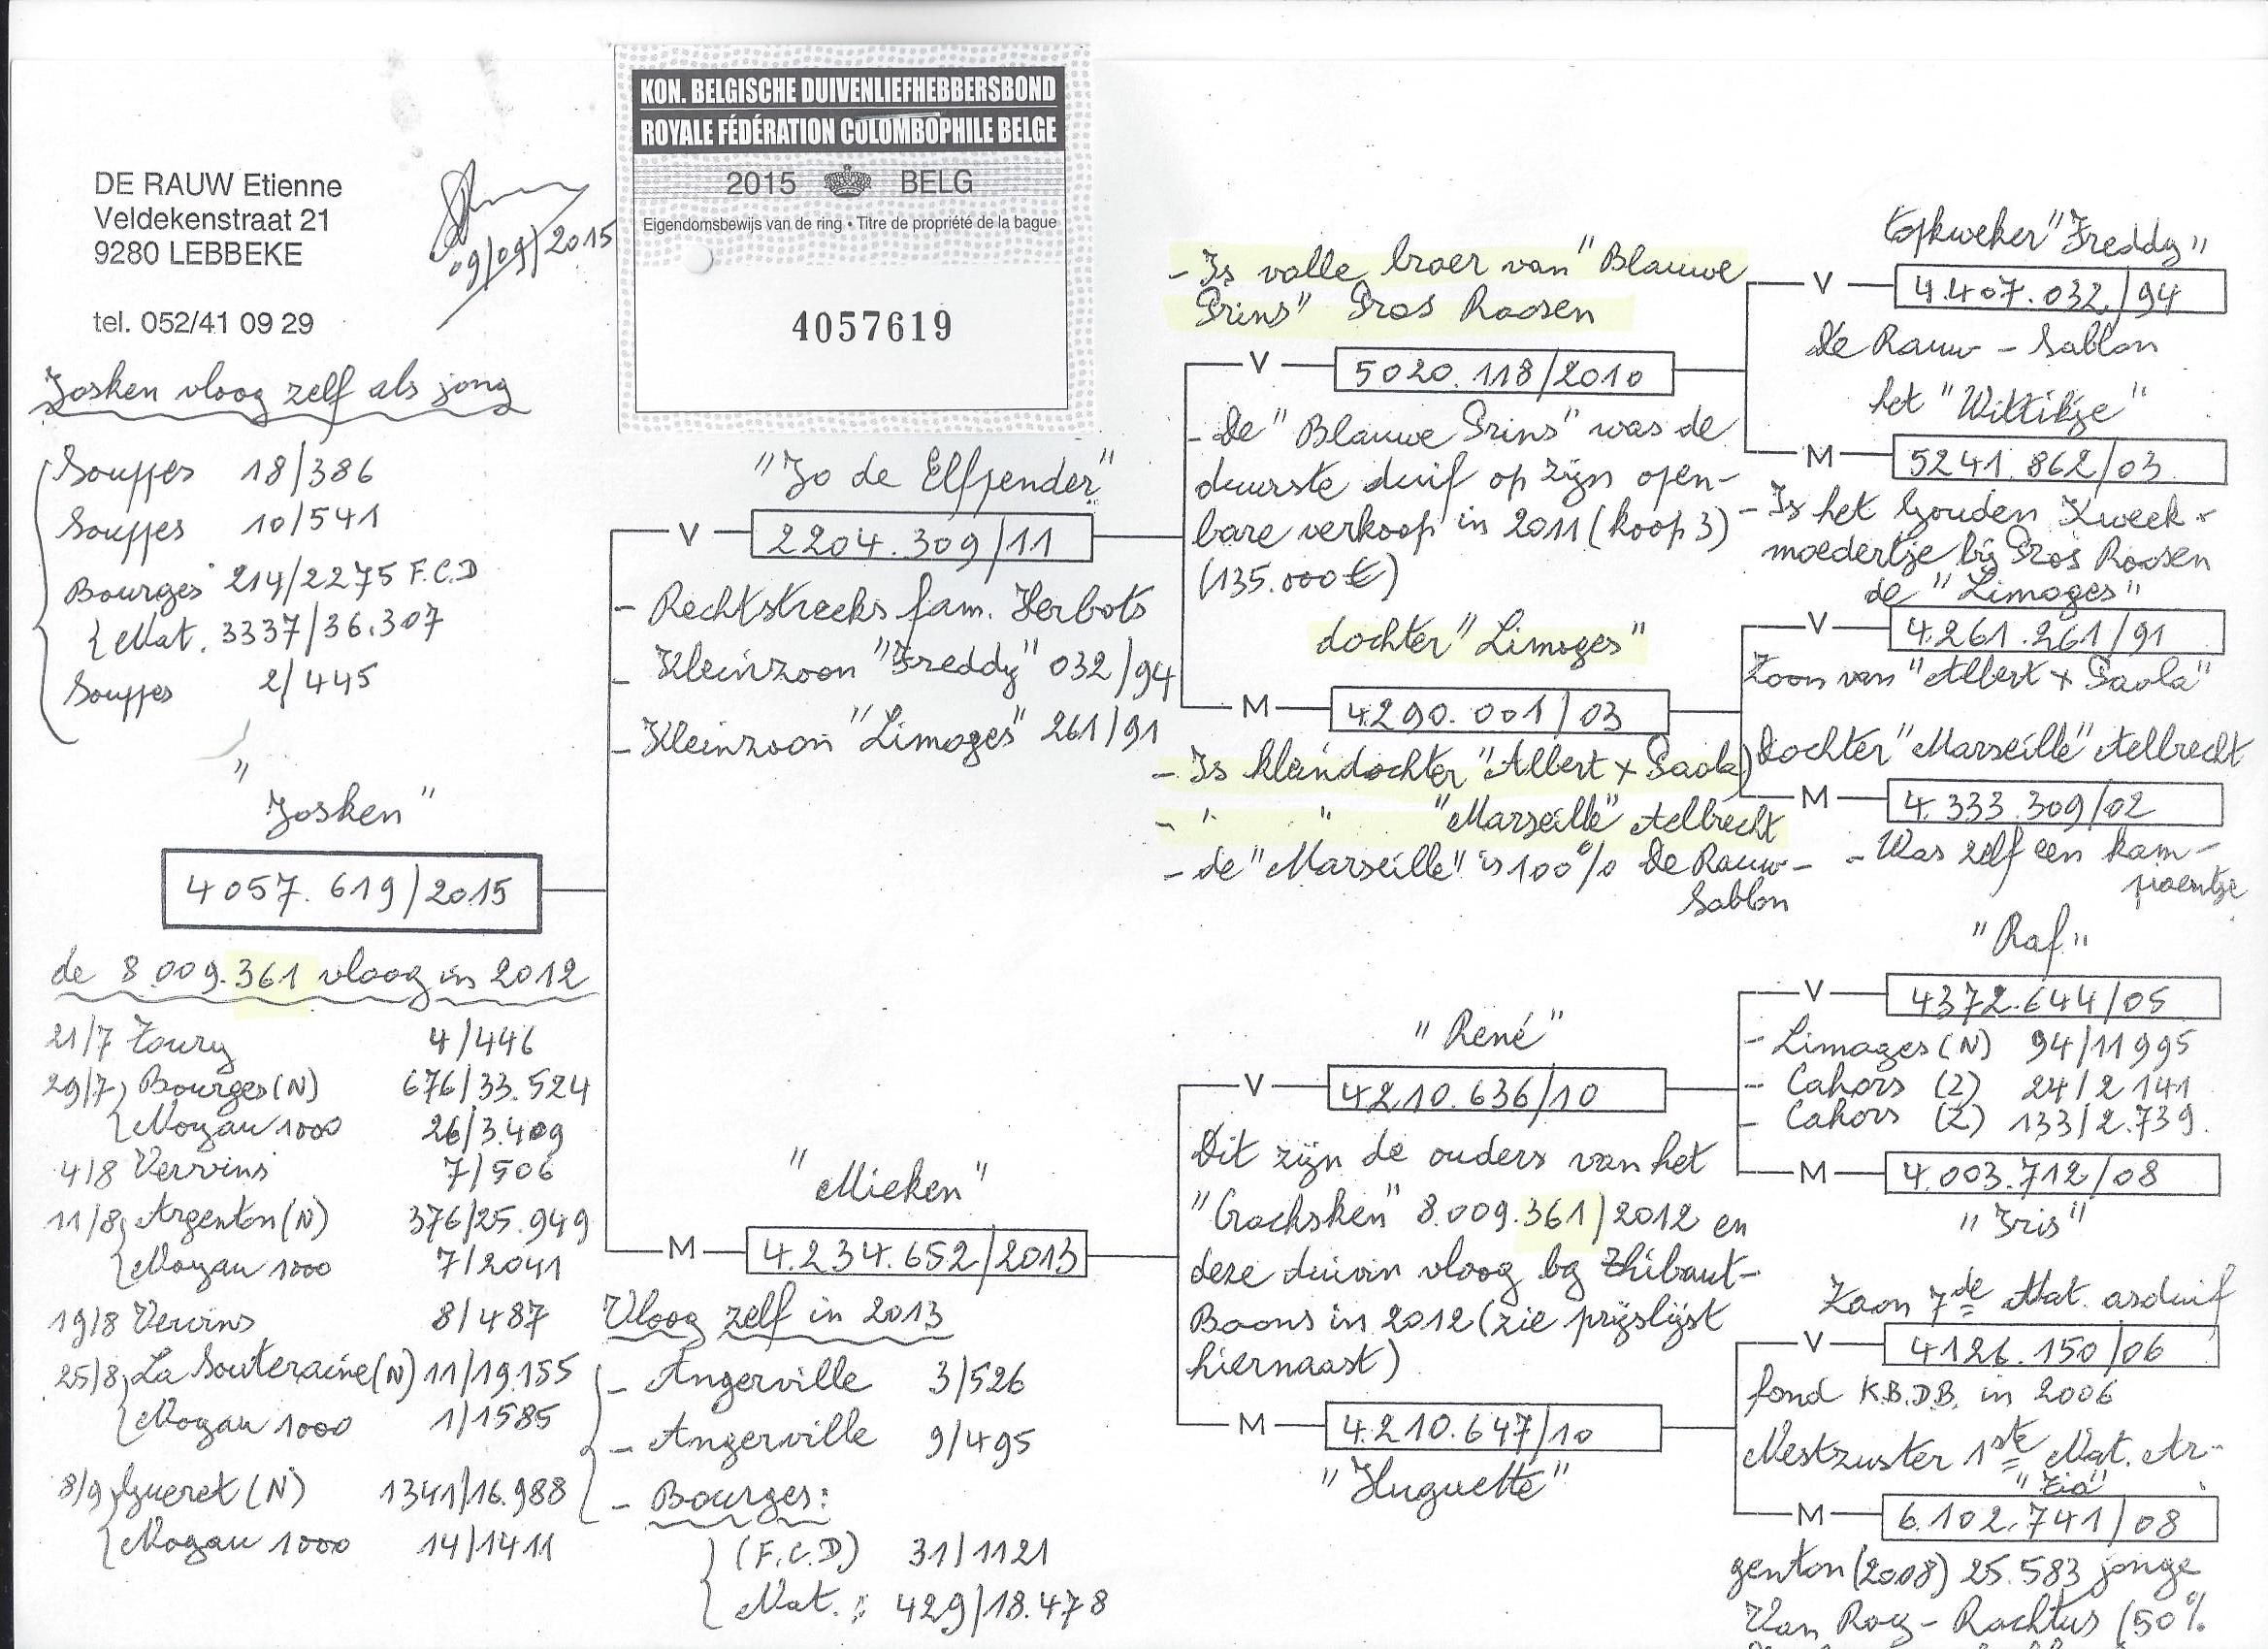 KON. BELGISCHE DUIVENLIEFHEBBERSBOND
ROYALE FÉDÉRATION COLOMBOPHILE BELGE
2015 BELG
Eigendomsbewijs van de ring • Titre de propriété de la bague
4057619
DE RAUW Etienne
Veldekenstraat 21
9280 LEBBEKE
09/09/2015
tel. 052/41 09 29
Josken vloog zelf als jong
Souppes 18/386
Souppes 10/541
Bourges 214/2275 F.C.D
Nat. 3337/36.307
Souppes 2/445
"Josken"
4057.619/2015
de 8.009.361 vloog in 2012
21/7 Toury 4/446
29/7 Bourges (N) 676/33.524
Noyau 1000 26/3.409
4/8 Vervins 7/506
11/8 Argenton (N) 376/25.949
Noyau 1000 7/2041
19/8 Vervins 8/487
25/8 La Souteraine (N) 11/19.155
Noyau 1000 1/1585
8/9 Gueret (N) 1341/16.988
Noyau 1000 14/1411
"Jo de Elfpender"
V 2204.309/11
- Rechtstreeks fam. Herbots
- Kleinzoon "Freddy" 032/94
- Kleinzoon "Limoges" 261/91
"Mieken"
M 4.234.652/2013
Vloog zelf in 2013
- Angerville 3/526
- Angerville 9/495
- Bourges:
(F.C.D) 31/1121
Nat. : 429/18.478
- Is volle broer van "Blauwe
Prins" Gros Roosen
V 5020.118/2010
- De "Blauwe Prins" was de
duurste duif op zijn open-
bare verkoop in 2011 (koop 3)
(135.000 €)
dochter "Limoges"
M 4.290.001/03
- Is kleindochter "Albert x Paola"
- " " "Marseille" Aelbrecht
- de "Marseille" is 100% De Rauw-
Sablon
"René"
V 4.210.636/10
Dit zijn de ouders van het
"Crocksken" 8.009.361/2012 en
deze duivin vloog bij Thibaut-
Boons in 2012 (zie prijslijst
hiernaast)
M 4.210.647/10
"Huguette"
topkweker "Freddy"
V 4.407.032/94
De Rauw - Sablon
het "Wittikje"
M 5241.862/03
- Is het Gouden Kweek-
moedertje bij Gros Roosen
de "Limoges"
V 4.261.261/91
Zoon van "Albert x Paola"
dochter "Marseille" Aelbrecht
M 4.333.309/02
- Was zelf een kam-
pioentje
"Raf"
V 4372.644/05
- Limoges (N) 94/11995
- Cahors (Z) 24/2141
- Cahors (Z) 133/2.739
M 4.003.712/08
"Iris"
Zoon 7de Nat. asduif
V 4126.150/06
fond K.B.D.B. in 2006
Nestzuster 1ste Nat. Ar-
"Zia"
M 6.102.741/08
genton (2008) 25.583 jonge
Van Roy - Rochtus (50%